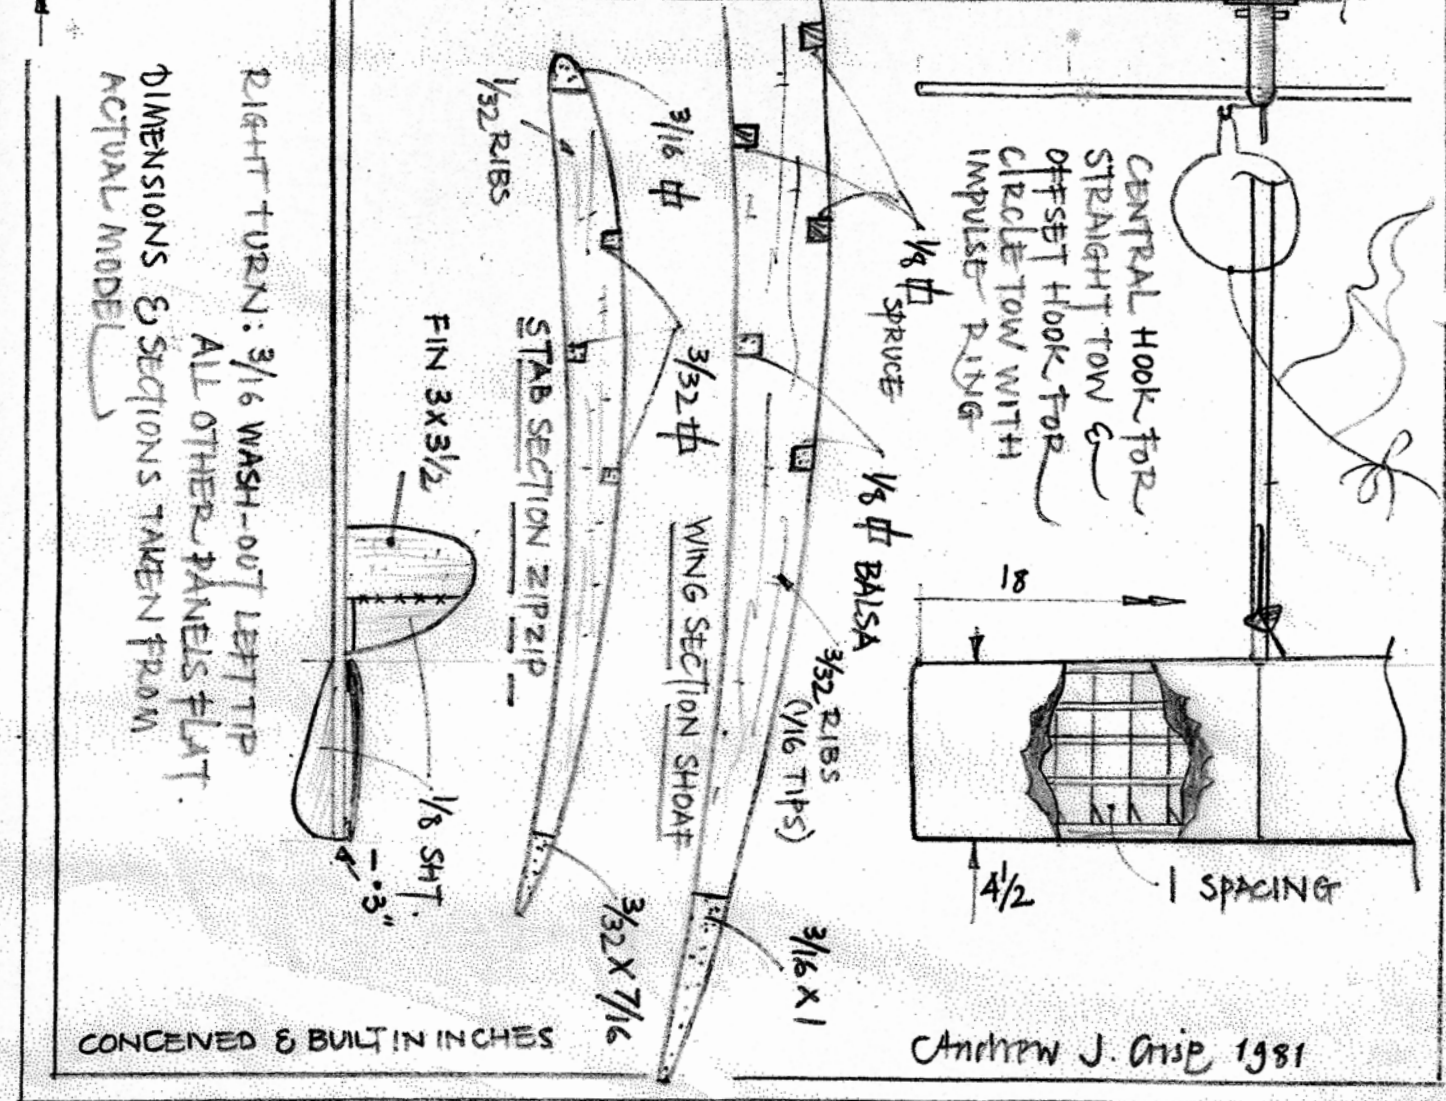 CENTRAL HOOK FOR
STRAIGHT TOW &
OFFSET HOOK FOR
CIRCLE TOW WITH
IMPULSE RING
1/8 SPRUCE
1/8 BALSA
3/32 RIBS
(1/16 TIPS)
3/16 X 1
WING SECTION SHOAF
3/16
3/32
3/32 X 7/16
1/32 RIBS
STAB SECTION ZIPZIP
FIN 3X3½
1/8 SHT.
RIGHT TURN: 3/16 WASH-OUT LEFT TIP
ALL OTHER PANELS FLAT.
DIMENSIONS & SECTIONS TAKEN FROM
ACTUAL MODEL
18
4½
1 SPACING
CONCEIVED & BUILT IN INCHES
Andrew J. Crisp 1981